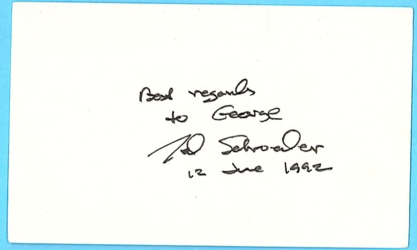 Best regards
to George
Ted Schroeder
12 June 1992